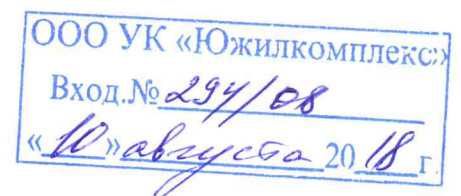 ООО УК «Южилкомплекс»
Вход.№ 294/08
«10» августа 2018 г.